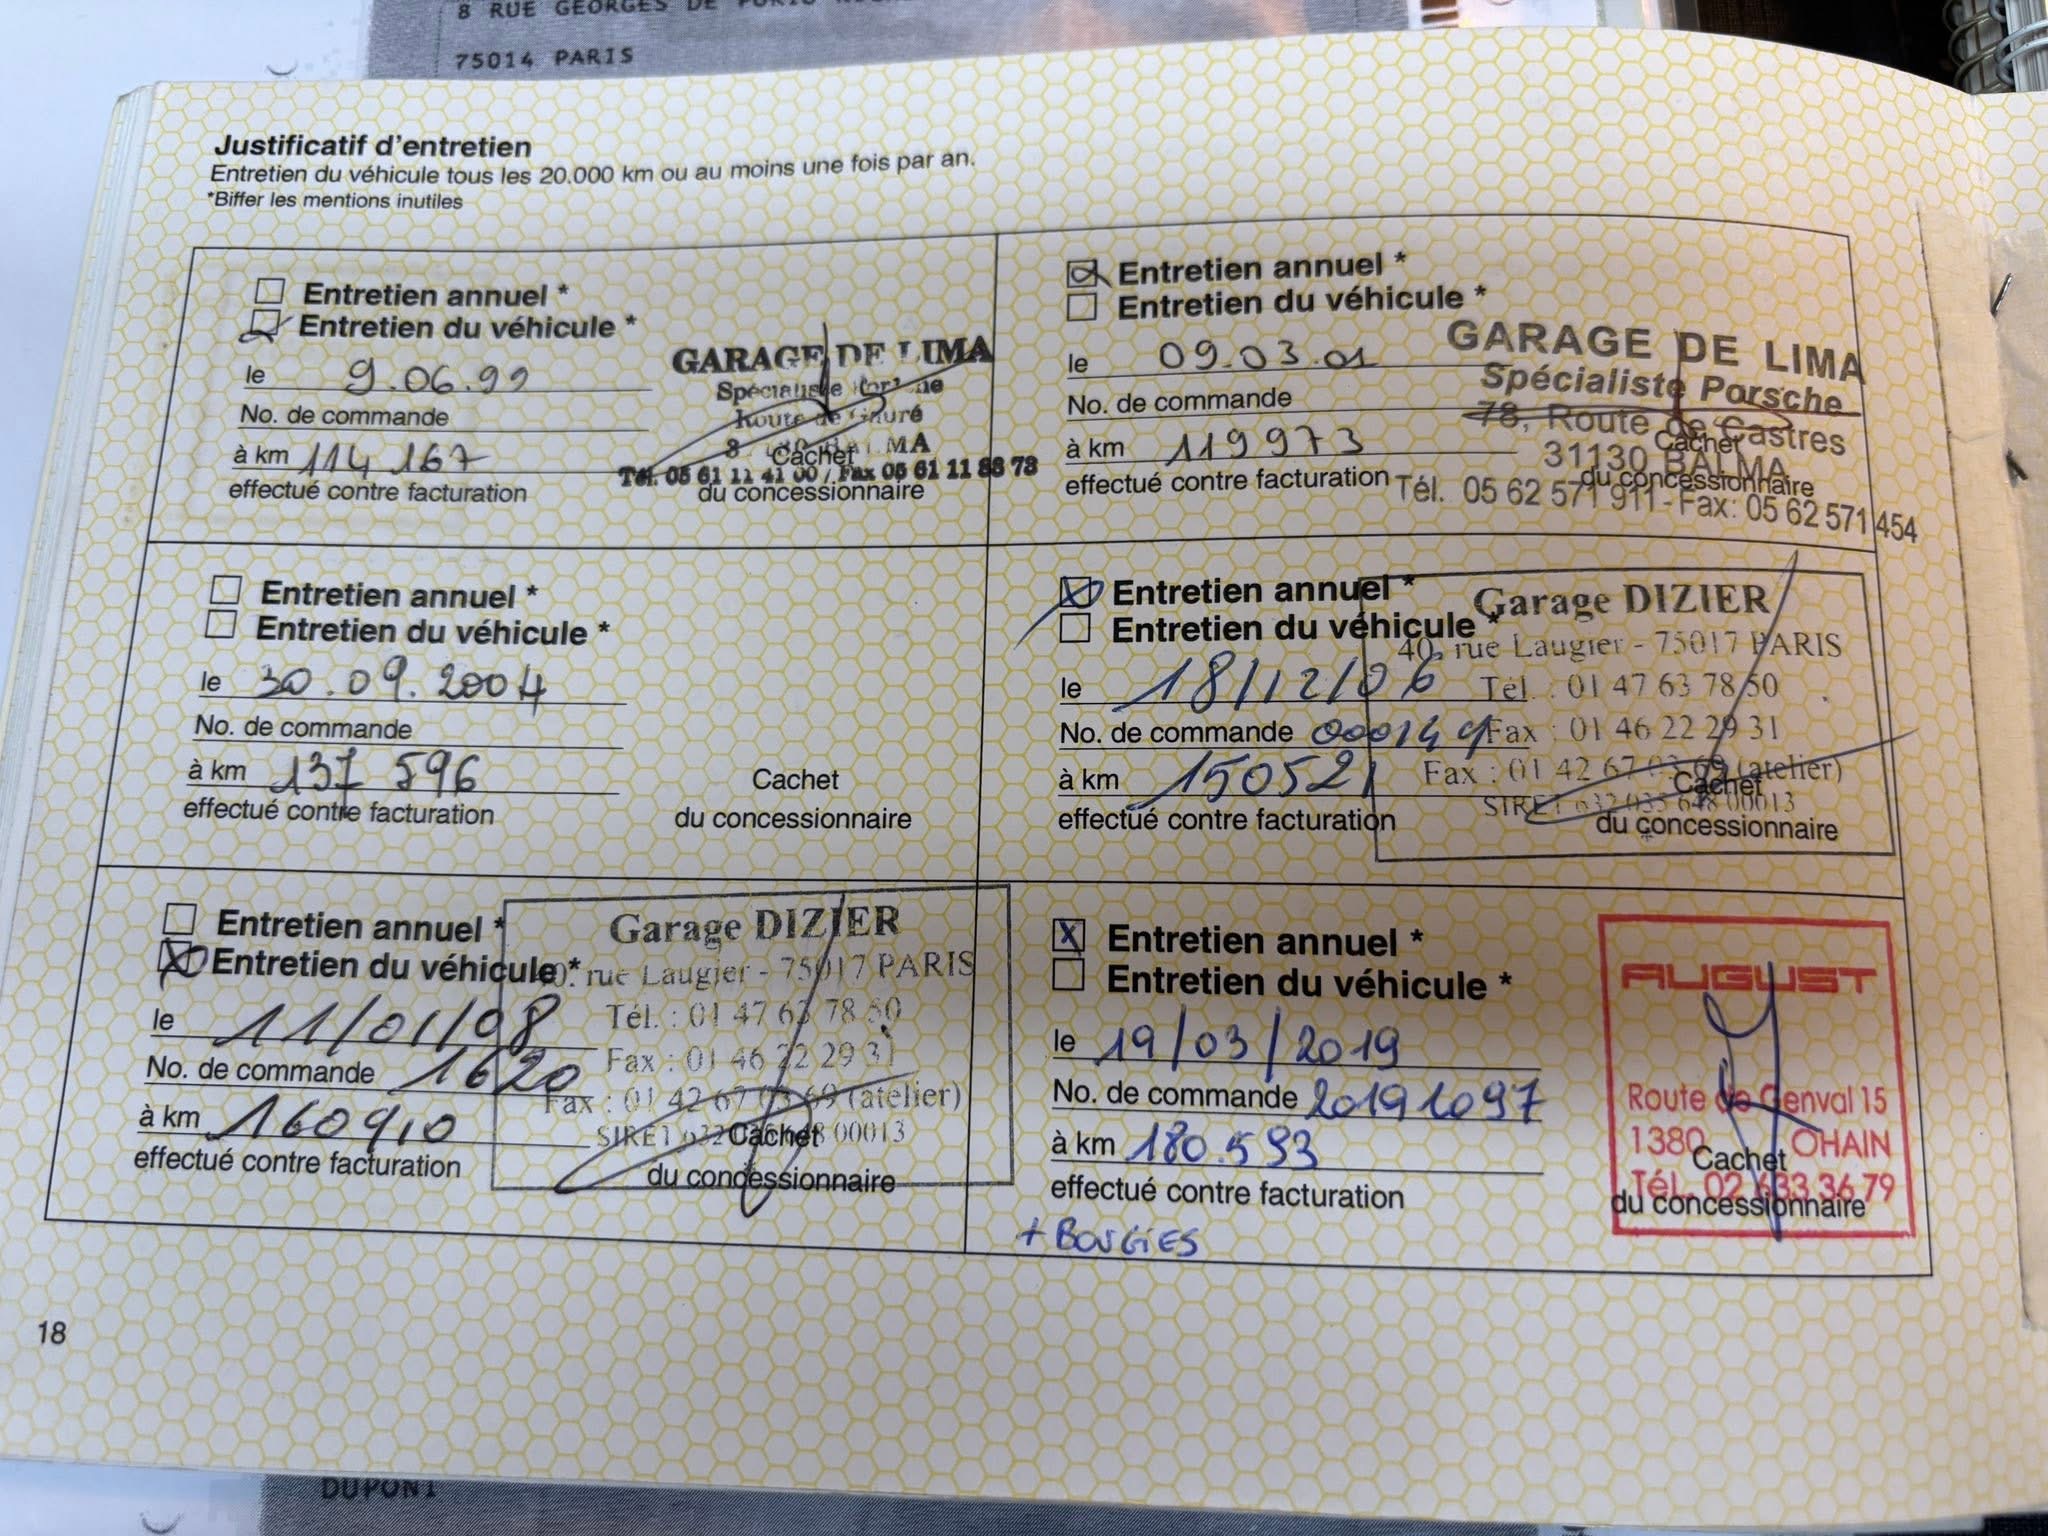 8 RUE GEORGES DE PORTO
75014 PARIS
Justificatif d'entretien
Entretien du véhicule tous les 20.000 km ou au moins une fois par an.
*Biffer les mentions inutiles
Entretien annuel *
Entretien du véhicule *
le 9.06.99
No. de commande
à km 114 167
effectué contre facturation
GARAGE DE LIMA
Spécialiste
Route de
BALMA
Tél. 05 61 11 41 00 / Fax 05 61 11 88 78
Cachet
du concessionnaire
Entretien annuel *
Entretien du véhicule *
le 09.03.01
No. de commande
à km 119973
effectué contre facturation
GARAGE DE LIMA
Spécialiste Porsche
78, Route de Castres
31130 BALMA
Tél. 05 62 571 911 - Fax : 05 62 571 454
Cachet
du concessionnaire
Entretien annuel *
Entretien du véhicule *
le 30.09.2004
No. de commande
à km 137 596
effectué contre facturation
Cachet
du concessionnaire
Entretien annuel *
Entretien du véhicule *
le 18/12/06
No. de commande 000149
à km 150521
effectué contre facturation
Garage DIZIER
40, rue Laugier - 75017 PARIS
Tél. : 01 47 63 78 50
Fax : 01 46 22 29 31
Fax : 01 42 67 03 69 (atelier)
SIRET 632 035 648 00013
Cachet
du concessionnaire
Entretien annuel *
Entretien du véhicule *
le 11/01/08
No. de commande 1620
à km 160910
effectué contre facturation
Garage DIZIER
40, rue Laugier - 75017 PARIS
Tél. : 01 47 63 78 50
Fax : 01 46 22 29 31
Fax : 01 42 67 03 69 (atelier)
SIRET 632 035 648 00013
Cachet
du concessionnaire
Entretien annuel *
Entretien du véhicule *
le 19/03/2019
No. de commande 20191097
à km 180.593
effectué contre facturation
+ BOUGIES
AUGUST
Route de Genval 15
1380 OHAIN
Tél. 02 633 36 79
Cachet
du concessionnaire
18
DUPONT